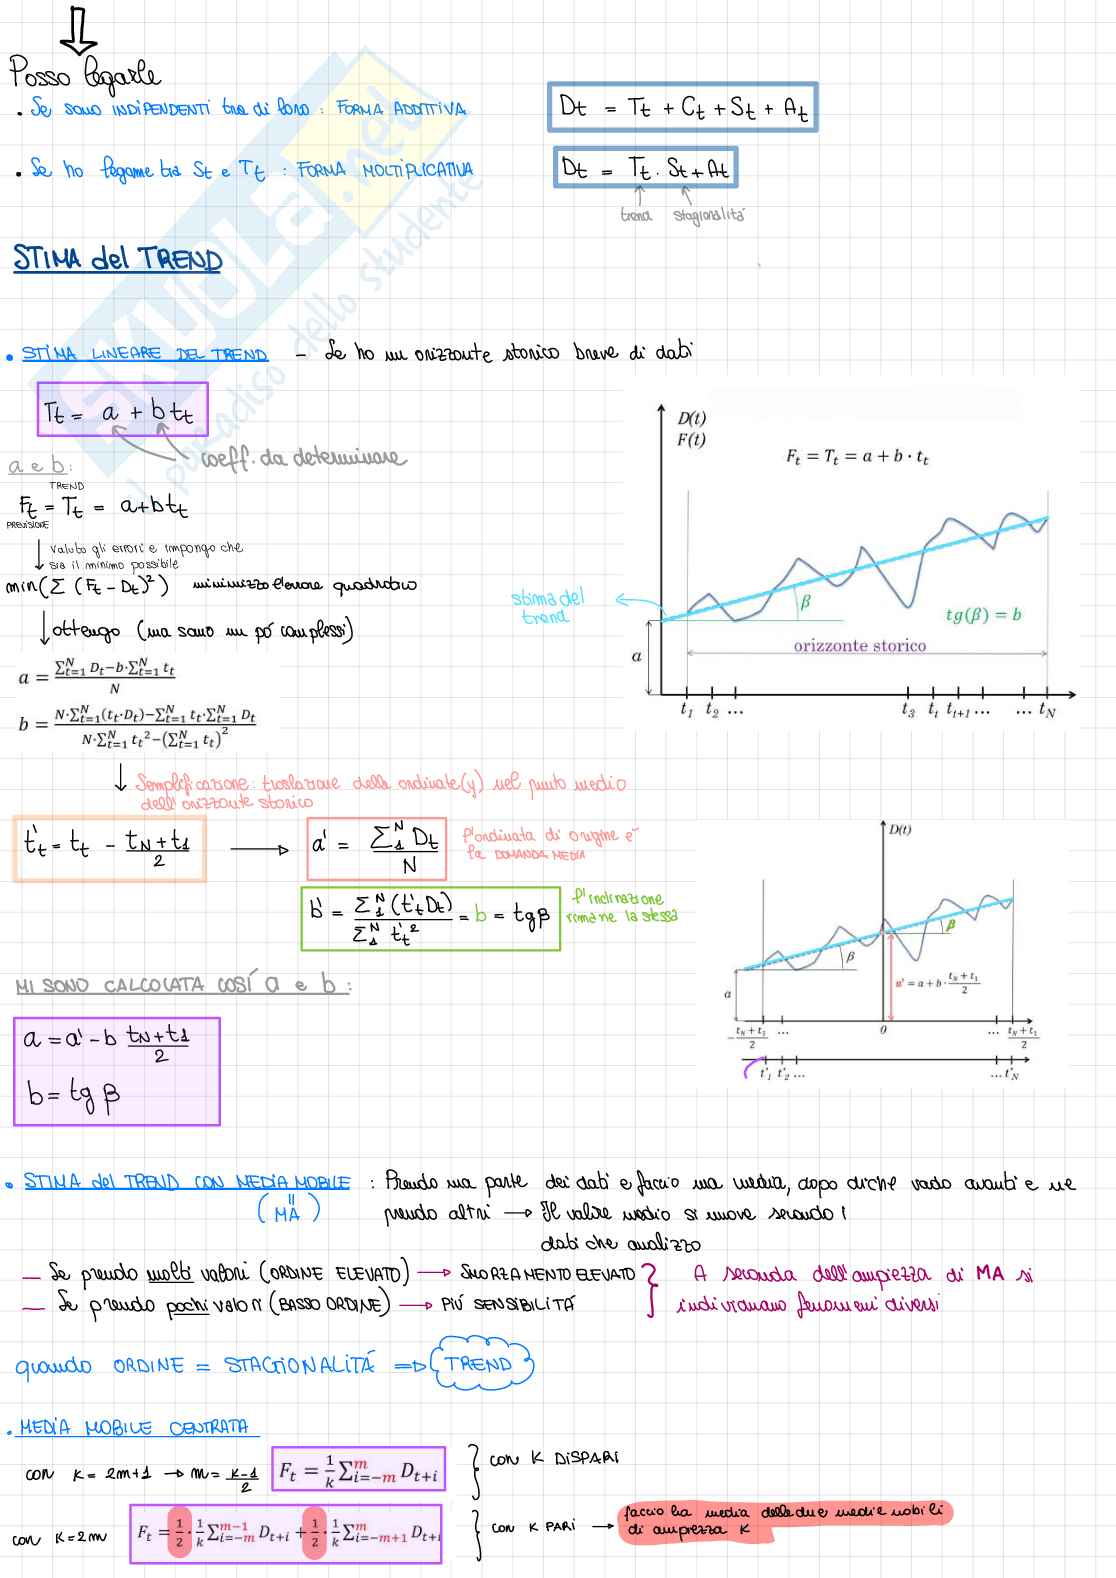 Posso legarle
• Se sono INDIPENDENTI tra di loro : FORMA ADDITIVA
Dt = Tt + Ct + St + At
• Se ho legame tra St e Tt : FORMA MOLTIPLICATIVA
Dt = Tt · St + At
trend stagionalità
SKUOLA.net
il paradiso dello studente
STIMA del TREND
• STIMA LINEARE DEL TREND – Se ho un orizzonte storico breve di dati
Tt = a + b tt
coeff. da determinare
a e b :
TREND
Ft = Tt = a + b tt
PREVISIONE
↓ valuto gli errori e impongo che
sia il minimo possibile
min(Σ (Ft - Dt)²) minimizzo l'errore quadratico
↓ ottengo (ma sono un pó complessi)
a = (∑_{t=1}^N D_t − b·∑_{t=1}^N t_t) / N
b = (N·∑_{t=1}^N (t_t·D_t) − ∑_{t=1}^N t_t·∑_{t=1}^N D_t) / (N·∑_{t=1}^N t_t² − (∑_{t=1}^N t_t)²)
D(t)
F(t)
F_t = T_t = a + b · t_t
stima del
trend
β
tg(β) = b
a
orizzonte storico
t1 t2 ... t3 ti tt+1 ... ... tN
↓ Semplificazione: traslazione delle ordinate (y) nel punto medio
dell'orizzonte storico
t't = tt - (tN + t1)/2 → a' = Σ₁ᴺ Dt / N
l'ordinata di origine è
la DOMANDA MEDIA
b' = Σ₁ᴺ (t't Dt) / Σ₁ᴺ t't² = b = tg β
l'inclinazione
rimane la stessa
D(t)
β
β
a
a' = a + b · (tN + t1)/2
-(tN + t1)/2 ... 0 ... (tN + t1)/2
t'1 t'2 ... ... t'N
MI SONO CALCOLATA COSÍ a e b :
a = a' - b (tN + t1)/2
b = tg β
• STIMA del TREND CON MEDIA MOBILE : Prendo una parte dei dati e faccio una media, dopo diche vado avanti e ne
( MA ) prendo altri → Il valore medio si muove secondo i
dati che analizzo
— Se prendo molti valori (ORDINE ELEVATO) → SMORZAMENTO ELEVATO
— Se prendo pochi valori (BASSO ORDINE) → PIÚ SENSIBILITÁ
A seconda dell'ampiezza di MA si
individuano fenomeni diversi
quando ORDINE = STAGIONALITÁ ⇒ TREND
• MEDIA MOBILE CENTRATA
con K = 2m+1 → m = (K-1)/2 F_t = 1/k ∑_{i=−m}^{m} D_{t+i} } con K DISPARI
con K = 2m F_t = 1/2 · 1/k ∑_{i=−m}^{m−1} D_{t+i} + 1/2 · 1/k ∑_{i=−m+1}^{m} D_{t+i} } con K PARI → faccio la media delle due medie mobili
di ampiezza K